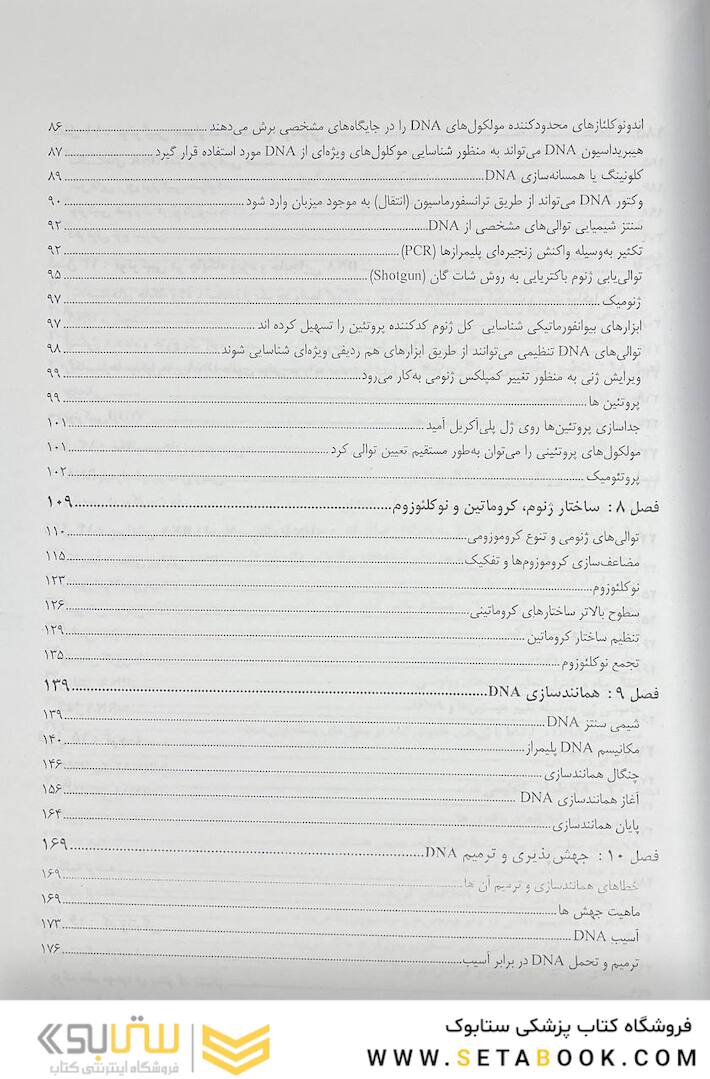 اندونوکلئازهای محدودکننده مولکول‌های DNA را در جایگاه‌های مشخصی برش می‌دهند ۸۶
هیبریداسیون DNA می‌تواند به منظور شناسایی موکلول‌های ویژه‌ای از DNA مورد استفاده قرار گیرد ۸۷
کلونینگ یا همسانه‌سازی DNA ۸۹
وکتور DNA می‌تواند از طریق ترانسفورماسیون (انتقال) به موجود میزبان وارد شود ۹۰
سنتز شیمیایی توالی‌های مشخصی از DNA ۹۲
تکثیر به‌وسیله واکنش زنجیره‌ای پلیمرازها (PCR) ۹۲
توالی‌یابی ژنوم باکتریایی به روش شات گان (Shotgun) ۹۵
ژنومیک ۹۷
ابزارهای بیوانفورماتیکی شناسایی کل ژنوم کدکننده پروتئین را تسهیل کرده اند ۹۷
توالی‌های DNA تنظیمی می‌توانند از طریق ابزارهای هم ردیفی ویژه‌ای شناسایی شوند ۹۸
ویرایش ژنی به منظور تغییر کمپلکس ژنومی به‌کار می‌رود ۹۹
پروتئین ها ۹۹
جداسازی پروتئین‌ها روی ژل پلی‌آکریل آمید ۱۰۱
مولکول‌های پروتئینی را می‌توان به‌طور مستقیم تعیین توالی کرد ۱۰۱
پروتئومیک ۱۰۲
فصل ۸: ساختار ژنوم، کروماتین و نوکلئوزوم ۱۰۹
توالی‌های ژنومی و تنوع کروموزومی ۱۱۰
مضاعف‌سازی کروموزوم‌ها و تفکیک ۱۱۵
نوکلئوزوم ۱۲۳
سطوح بالاتر ساختارهای کروماتینی ۱۲۶
تنظیم ساختار کروماتین ۱۲۹
تجمع نوکلئوزوم ۱۳۵
فصل ۹: همانندسازی DNA ۱۳۹
شیمی سنتز DNA ۱۳۹
مکانیسم DNA پلیمراز ۱۴۰
چنگال همانندسازی ۱۴۶
آغاز همانندسازی DNA ۱۵۶
پایان همانندسازی ۱۶۴
فصل ۱۰: جهش‌پذیری و ترمیم DNA ۱۶۹
خطاهای همانندسازی و ترمیم آن ها ۱۶۹
ماهیت جهش ها ۱۶۹
آسیب DNA ۱۷۳
ترمیم و تحمل DNA در برابر آسیب ۱۷۶
فروشگاه کتاب پزشکی ستابوک
WWW.SETABOOK.COM
ستابوک
فروشگاه اینترنتی کتاب